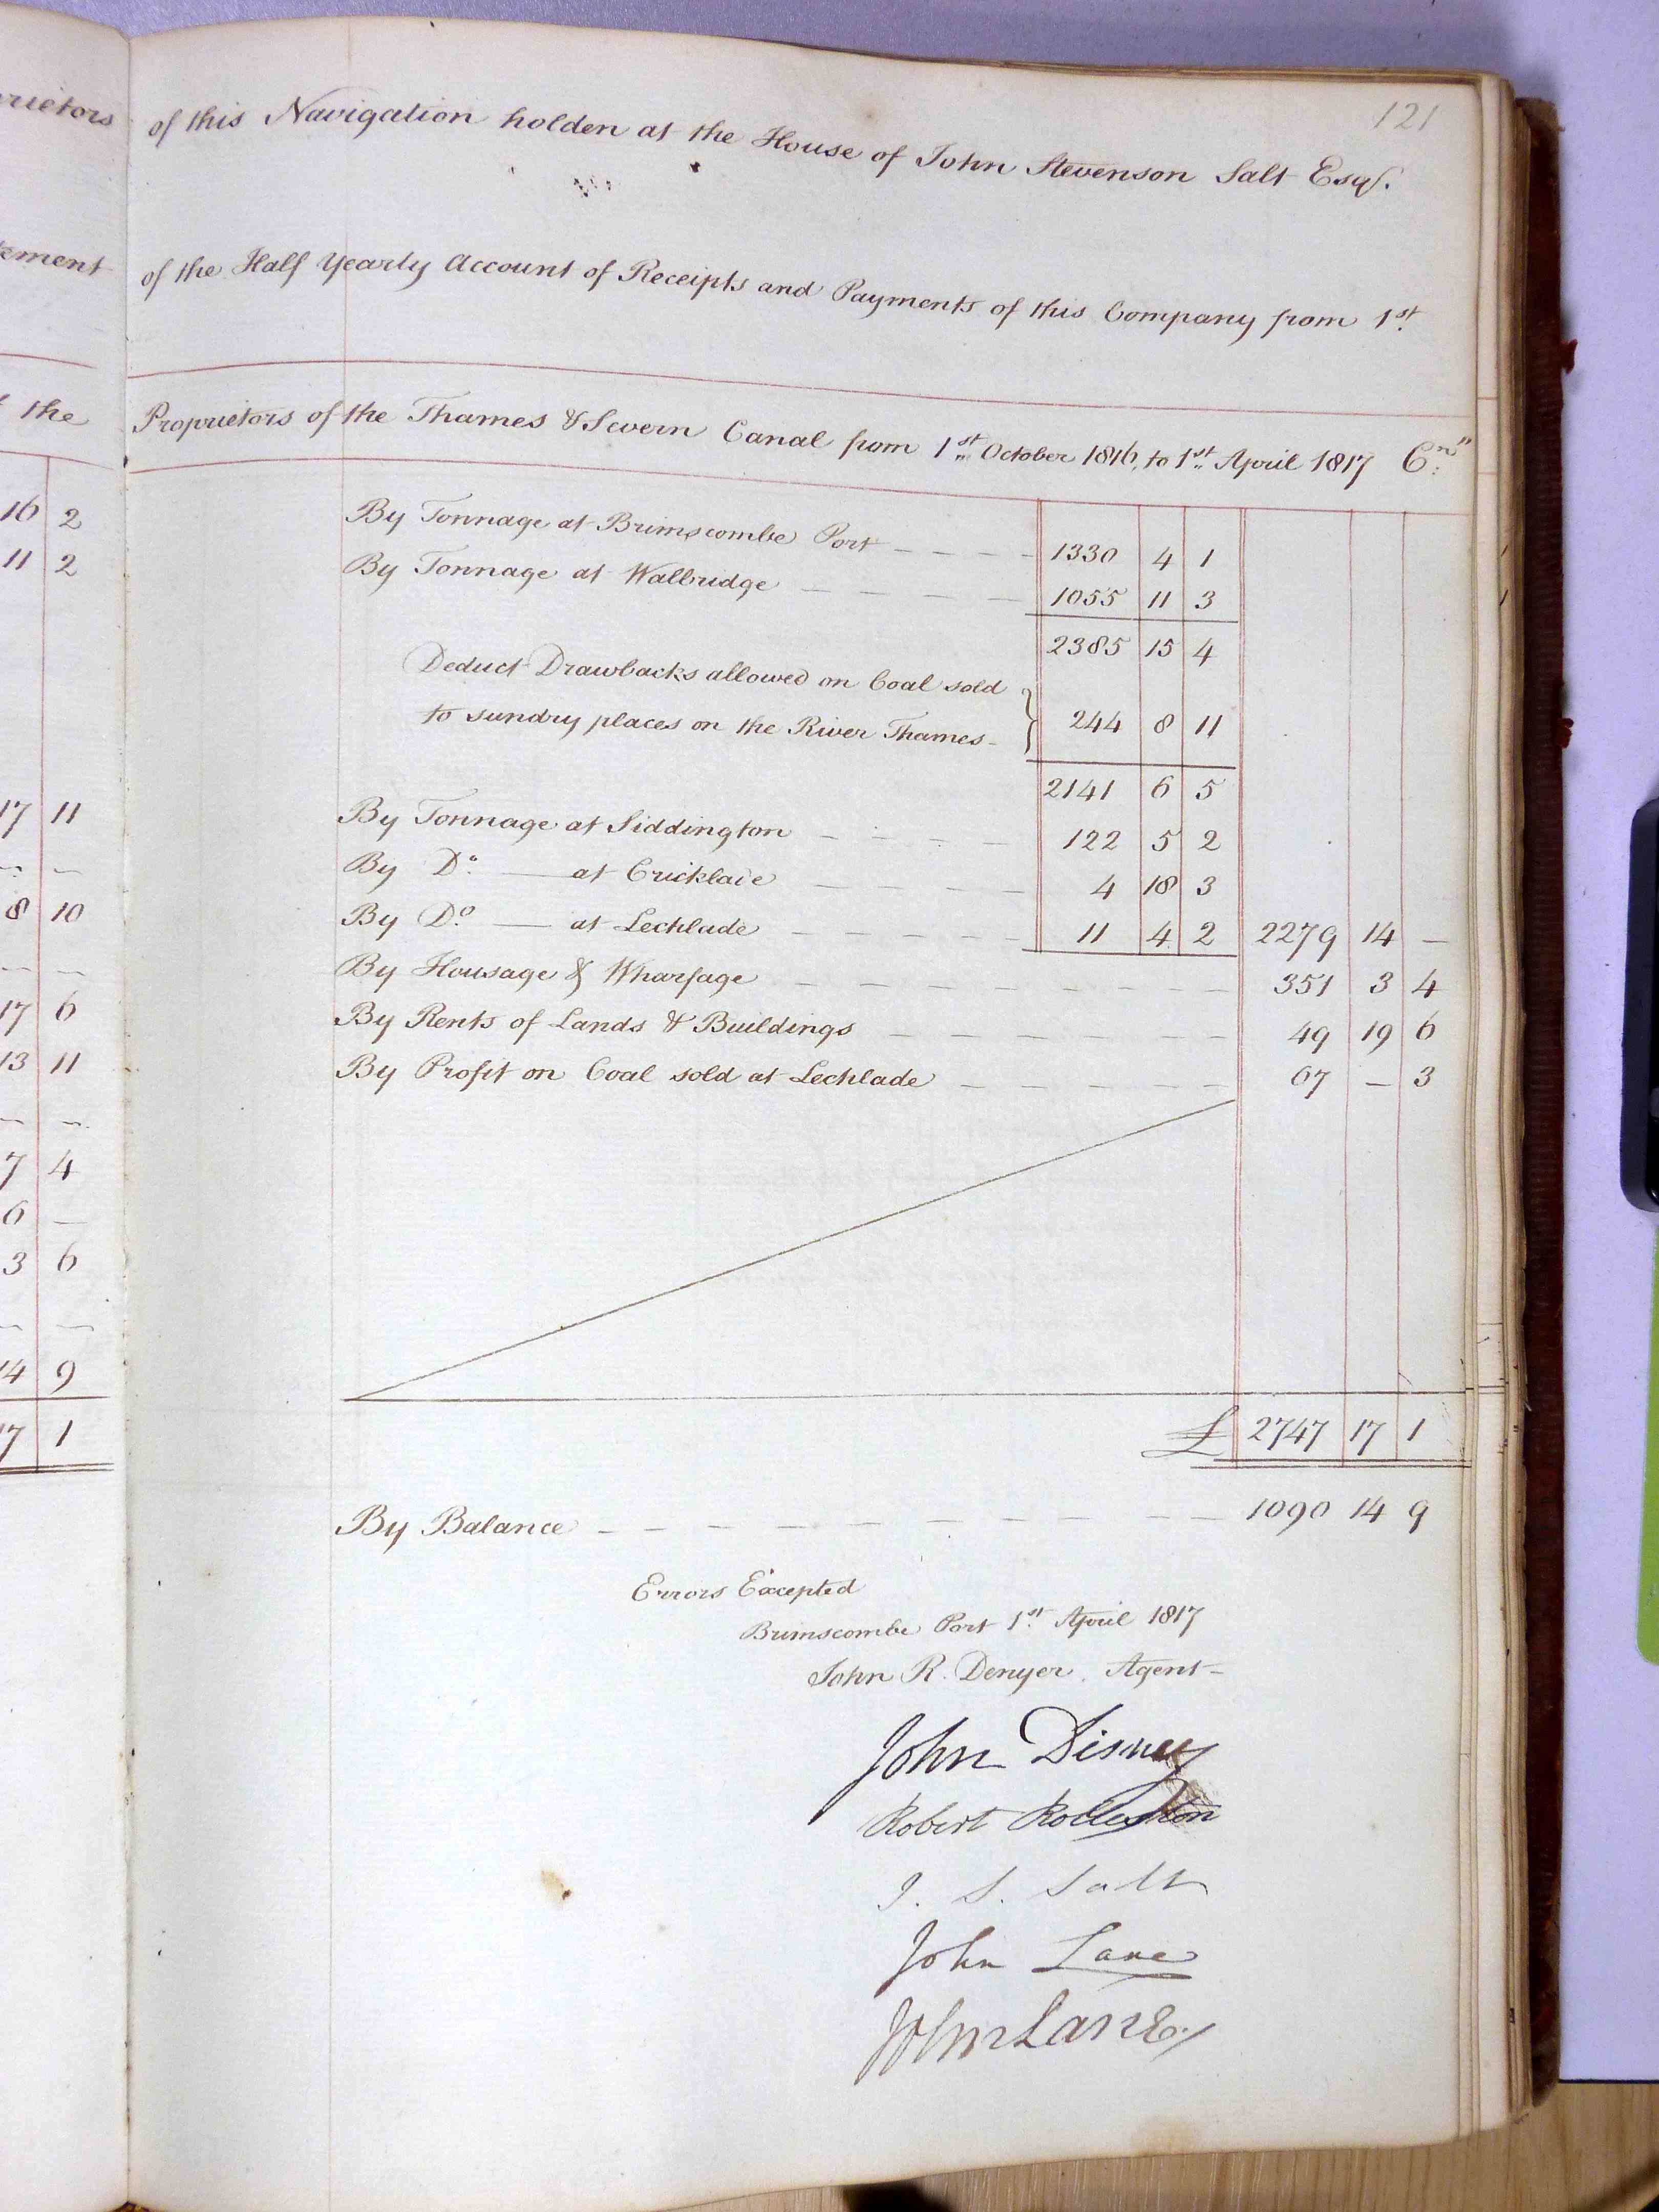 121
rietors
of this Navigation holden at the House of John Stevenson Salt Esqr.
tement
of the Half Yearly Account of Receipts and Payments of this Company from 1st.
the
Proprietors of the Thames & Severn Canal from 1st October 1816, to 1st April 1817 Cr
16 2
11 2
17 11
8 10
17 6
13 11
7 4
6 —
3 6
14 9
17 1
By Tonnage at Brimscombe Port — — — — 1330 4 1
By Tonnage at Wallbridge — — — — 1055 11 3
2385 15 4
Deduct Drawbacks allowed on Coal sold
to sundry places on the River Thames — } 244 8 11
2141 6 5
By Tonnage at Siddington — — — — 122 5 2
By Do. — at Cricklade — — — — 4 18 3
By Do. — at Lechlade — — — — 11 4 2 2279 14 —
By Housage & Wharfage — — — — 351 3 4
By Rents of Lands & Buildings — — — — 49 19 6
By Profit on Coal sold at Lechlade — — — — 67 — 3
£ 2747 17 1
By Balance — — — — 1090 14 9
Errors Excepted
Brimscombe Port 1st. April 1817
John R. Denyer. Agent —
John Disney
Robert Rolleston
J. S. Salt
John Lane
John Lane